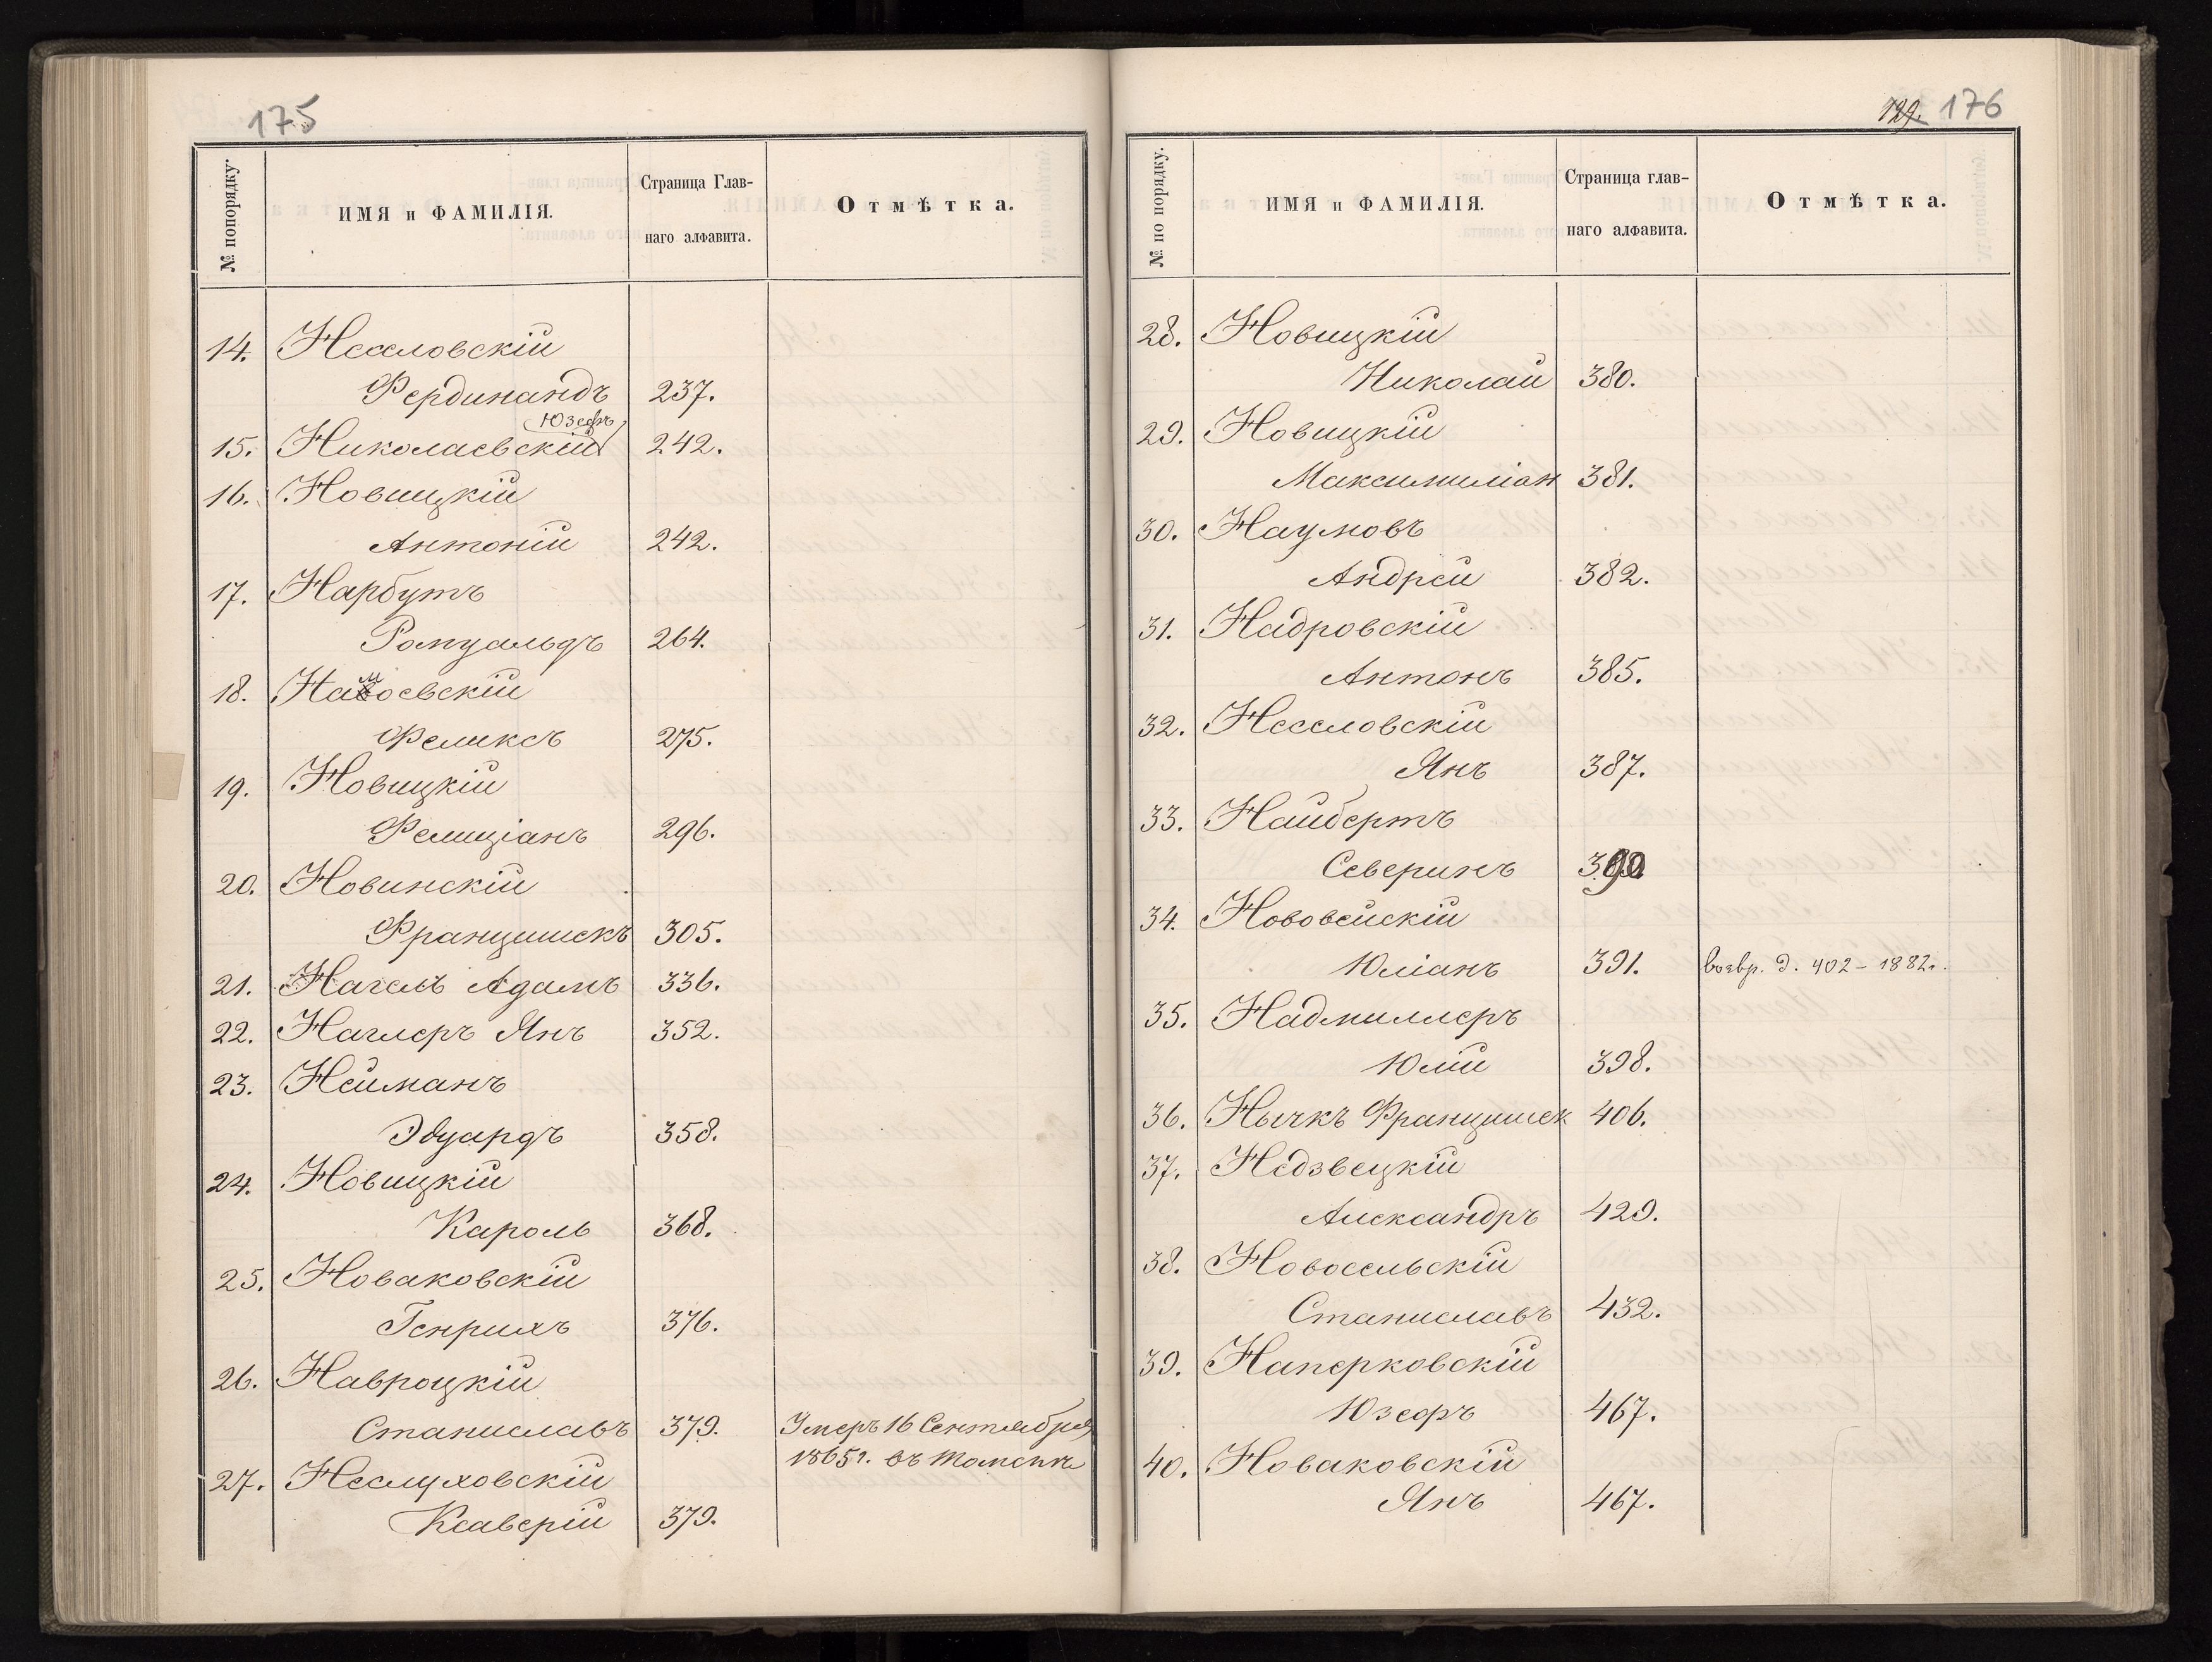 175
№ попорядку.
ИМЯ и ФАМИЛІЯ.
Страница Глав-
наго алфавита.
Отмѣтка.
14. Несловскій
Фердинандъ 237.
Юзефъ
15. Николаевскій 242.
16. Новицкій
Антоній 242.
17. Нарбутъ
Ромуальдъ 264.
18. Намоевскій
Феликсъ 275.
19. Новицкій
Фелиціанъ 296.
20. Новинскій
Францишекъ 305.
21. Нагель Адамъ 336.
22. Наглеръ Янъ 352.
23. Нейманъ
Эдуардъ 358.
24. Новицкій
Кароль 368.
25. Новаковскій
Генрихъ 376.
26. Навроцкій
Станиславъ 379. Умеръ 16 Сентября
1865 г. въ Томскѣ
27. Неслуховскій
Ксаверій 379.
129. 176
№ по порядку.
ИМЯ и ФАМИЛІЯ.
Страница глав-
наго алфавита.
Отмѣтка.
28. Новицкій
Николай 380.
29. Новицкій
Максимиліан 381.
30. Наумовъ
Андрей 382.
31. Надровскій
Антонъ 385.
32. Несловскій
Янъ 387.
33. Найбертъ
Северинъ 390
34. Нововейскій
Юліанъ 391. возвр. д. 402 - 1882 г.
35. Надмиллеръ
Юлій 398.
36. Нычкъ Францишек 406.
37. Недзвецкій
Александръ 429.
38. Новосельскій
Станиславъ 432.
39. Наперковскій
Юзефъ 467.
40. Новаковскій
Янъ 467.